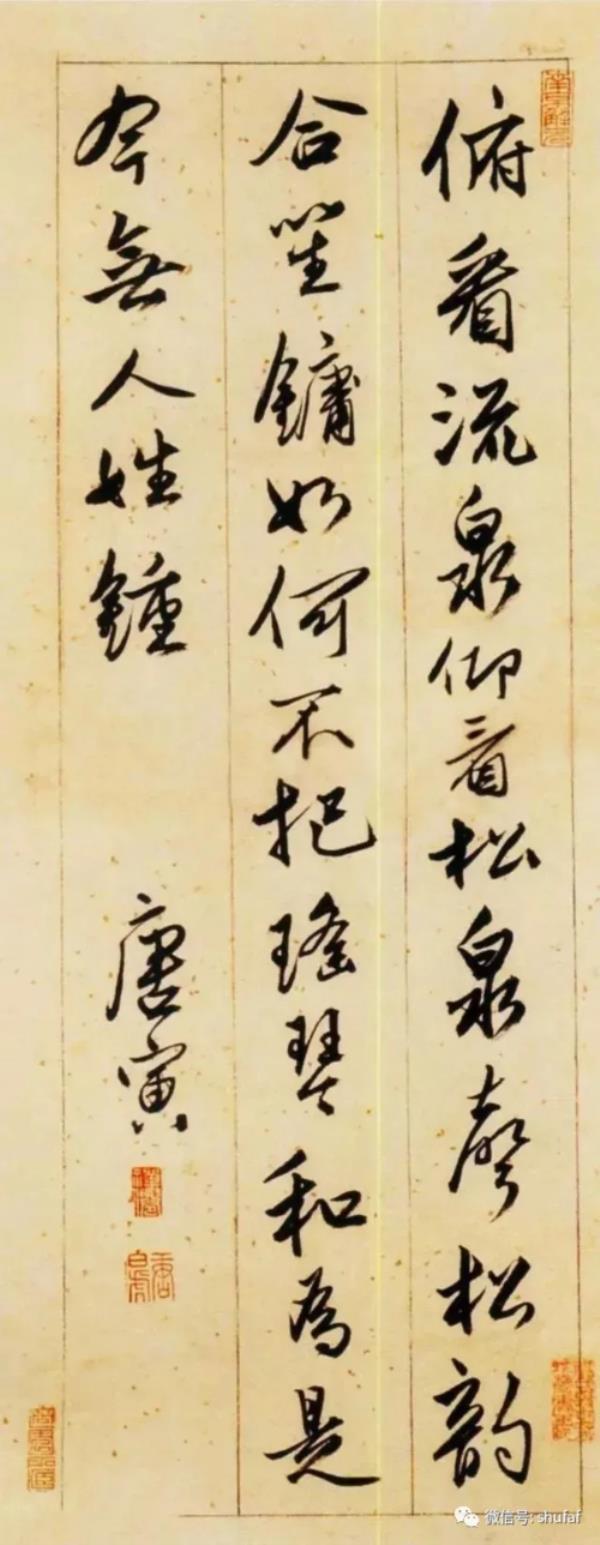 俯看流泉仰看松泉聲松韵
合笙鏞如何不把瑤琴和為是
今無人姓鍾
唐寅
微信号: shufaf